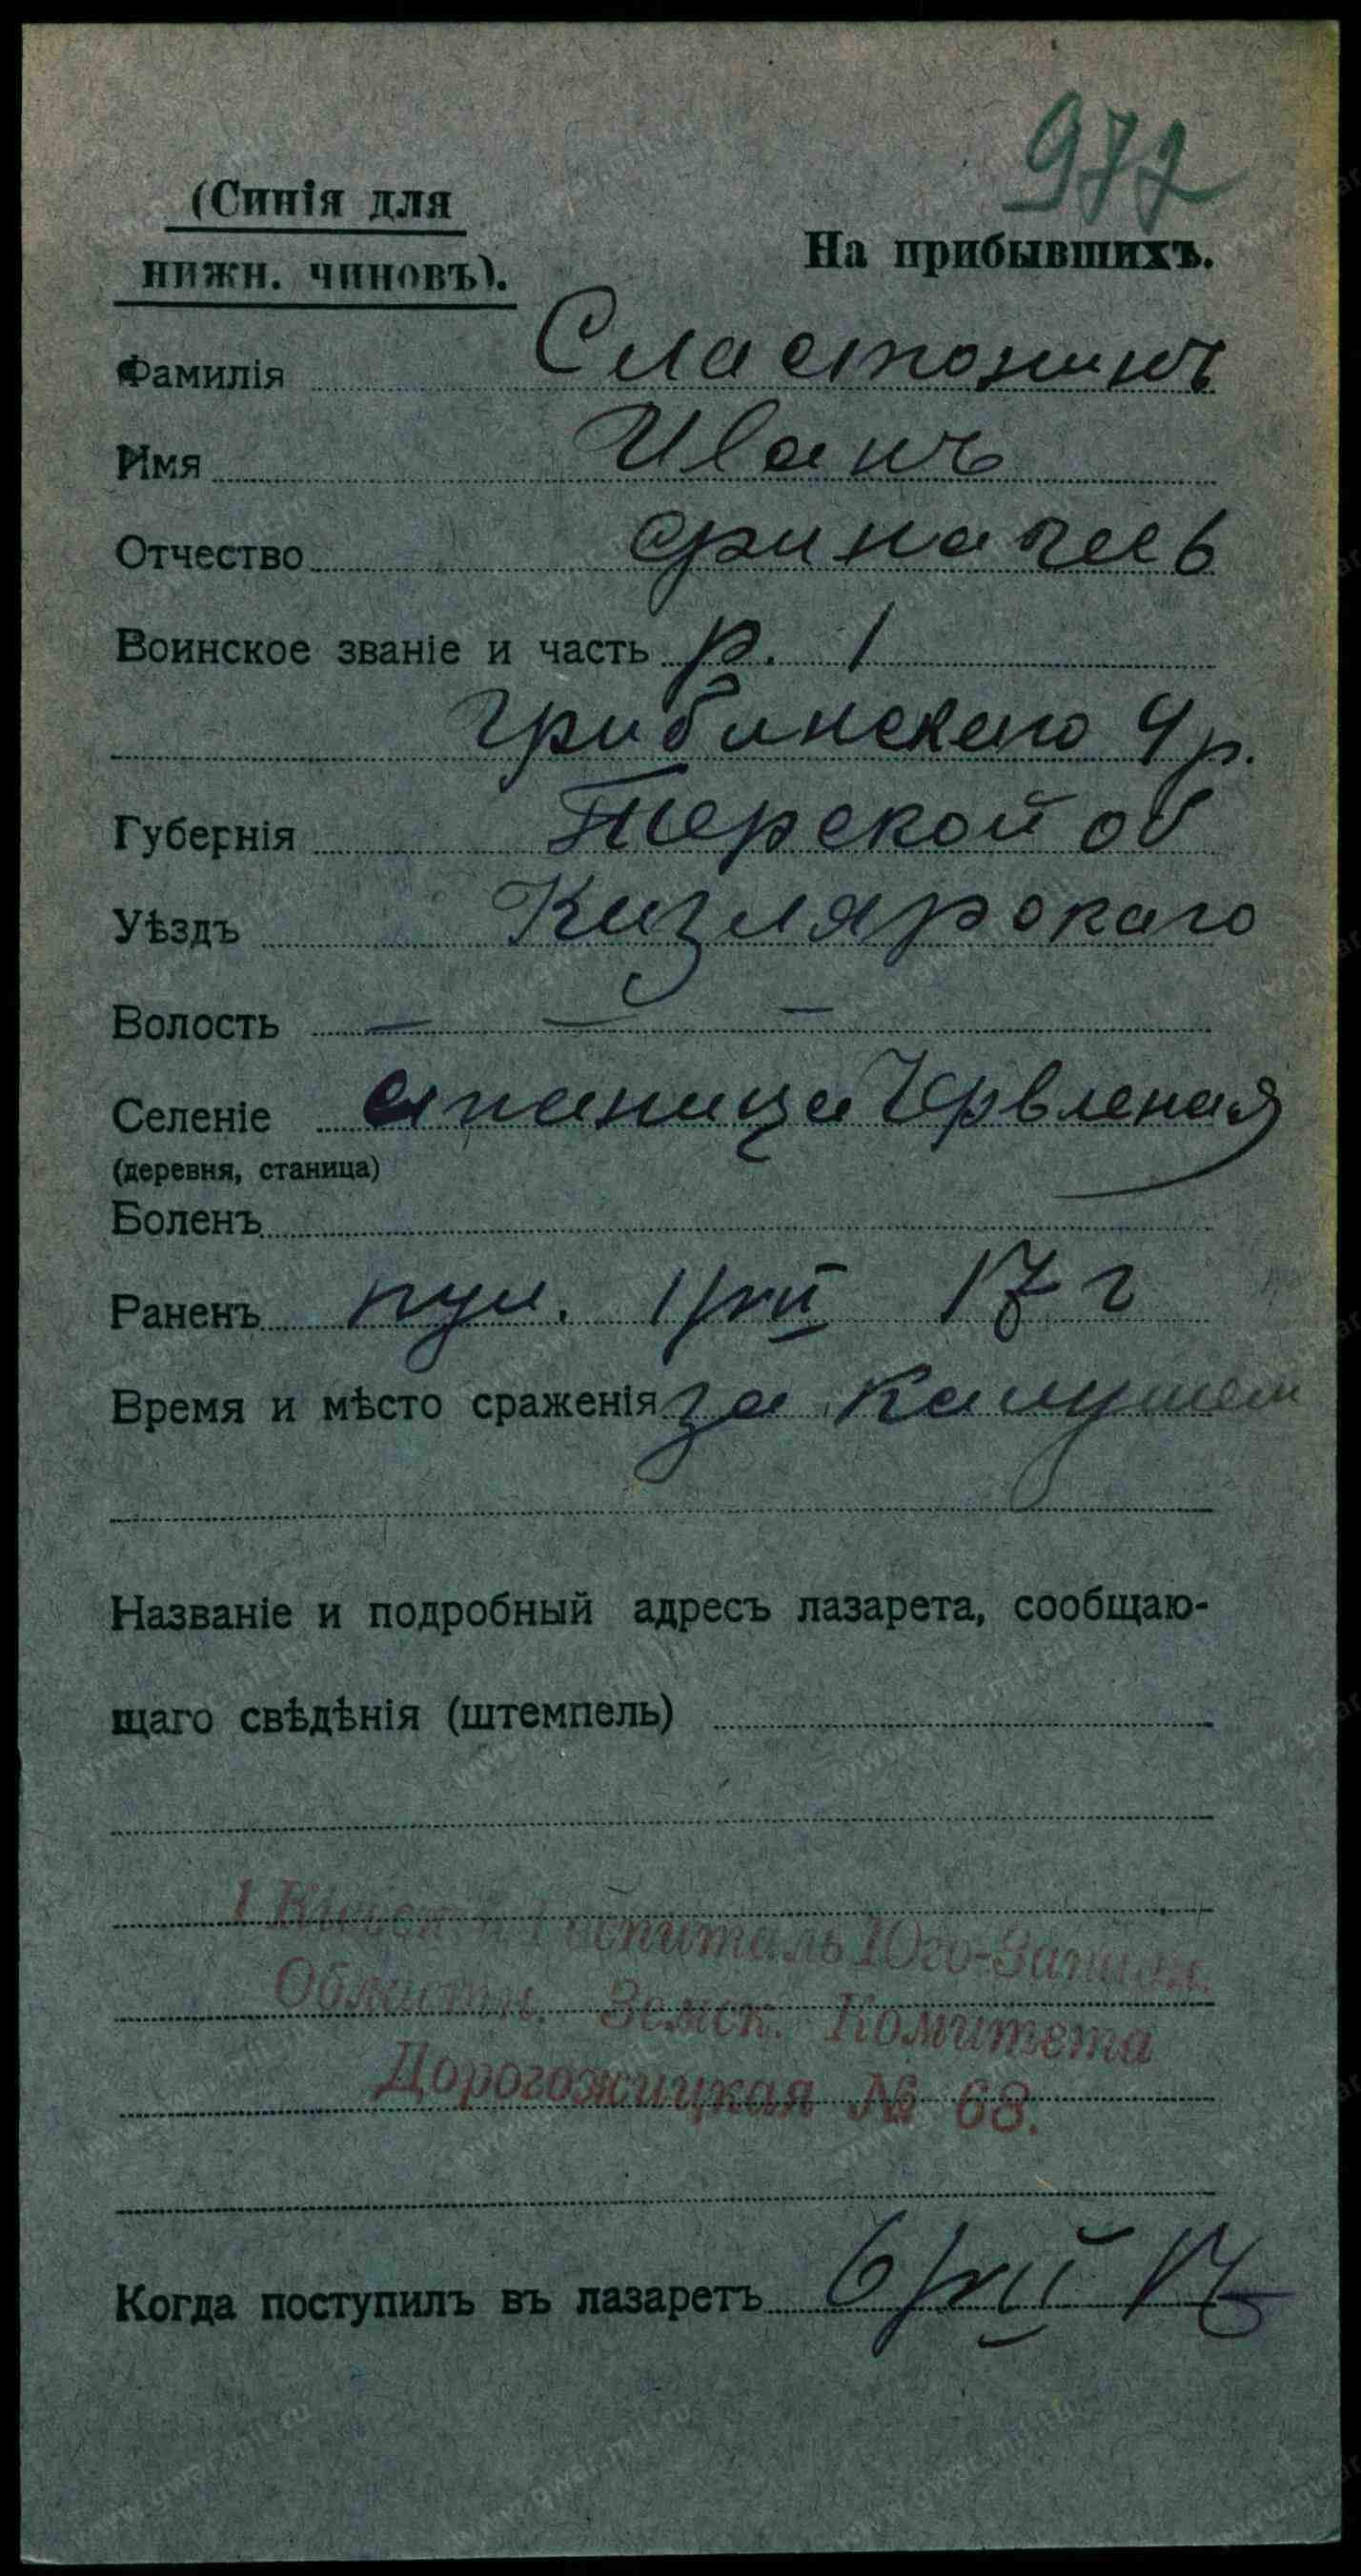 972
(Синія для
нижн. чиновъ).
На прибывшихъ.
Фамилія Сластонинъ
Имя Иванъ
Отчество
Воинское званіе и часть р. 1
4 р.
Губернія Терской об
Уѣздъ Кизлярскаго
Волость — — —
Селеніе станица Червленая
(деревня, станица)
Боленъ
Раненъ пул. 17 г
Время и мѣсто сраженія за Калушем
Названіе и подробный адресъ лазарета, сообщаю-
щаго свѣдѣнія (штемпель)
1 Кіевскій Госпиталь Юго-Западн.
Областн. Земск. Комитета
Дорогожицкая № 68.
Когда поступилъ въ лазаретъ 6/VII 17